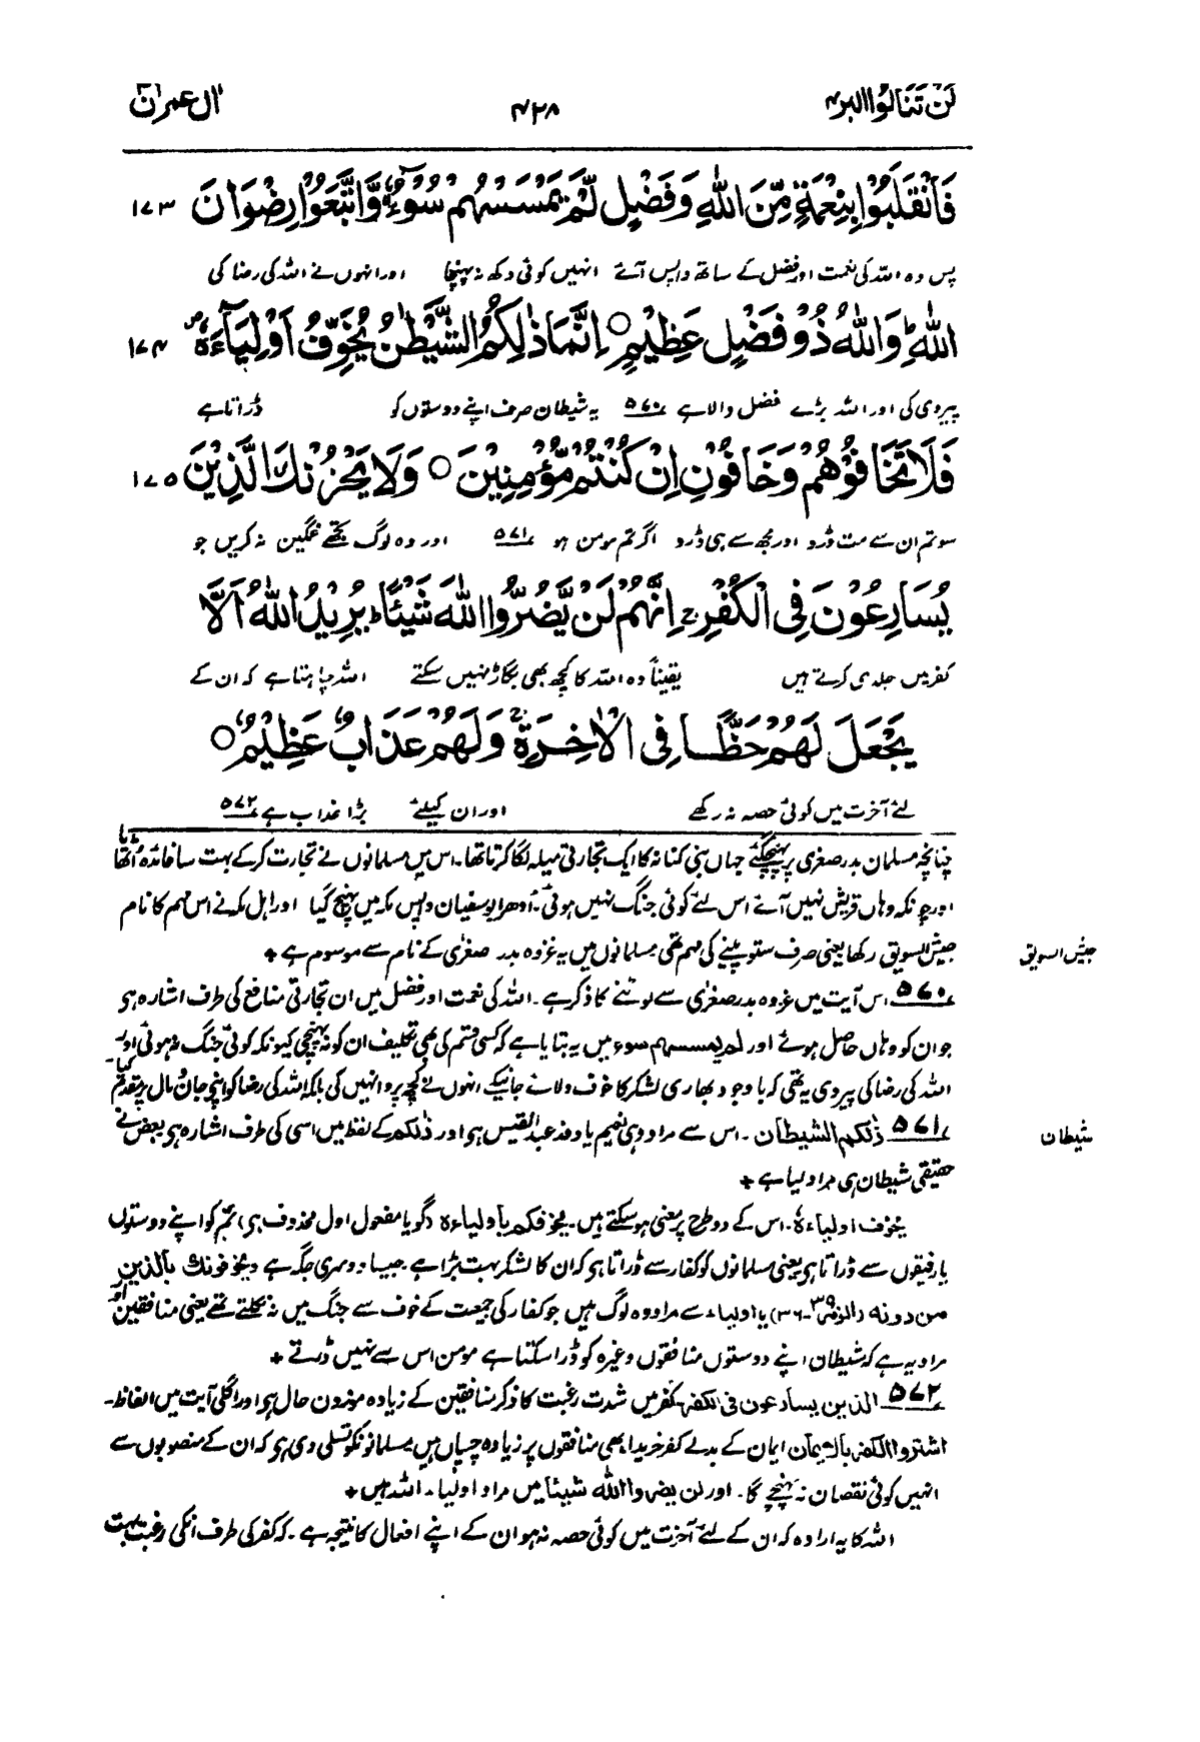 لَنْ تَنَالُوا البر ۴
۴۲۸
اٰل عمرٰن ۳
فَانْقَلَبُوْا بِنِعْمَةٍ مِّنَ اللّٰهِ وَفَضْلٍ لَّمْ يَمْسَسْهُمْ سُوْٓءٌ وَّاتَّبَعُوْا رِضْوَانَ ۱۷۳
پس وہ اللہ کی نعمت اور فضل کے ساتھ واپس آئے انہیں کوئی دکھ نہ پہنچا اور انہوں نے اللہ کی رضا کی
اللّٰهِ وَاللّٰهُ ذُوْ فَضْلٍ عَظِيْمٍ ○ اِنَّمَا ذٰلِكُمُ الشَّيْطٰنُ يُخَوِّفُ اَوْلِيَآءَهٗ ۱۷۴
پیروی کی اور اللہ بڑے فضل والا ہے ۵۷۰ یہ شیطان صرف اپنے دوستوں کو ڈراتا ہے
فَلَا تَخَافُوْهُمْ وَخَافُوْنِ اِنْ كُنْتُمْ مُّؤْمِنِيْنَ ○ وَلَا يَحْزُنْكَ الَّذِيْنَ ۱۷۵
سو تم ان سے مت ڈرو اور مجھ سے ہی ڈرو اگر تم مومن ہو ۵۷۱ اور وہ لوگ تجھے غمگین نہ کریں جو
يُسَارِعُوْنَ فِى الْكُفْرِ ۚ اِنَّهُمْ لَنْ يَّضُرُّوا اللّٰهَ شَيْئًا ؕ يُرِيْدُ اللّٰهُ اَلَّا
کفر میں جلدی کرتے ہیں یقیناً وہ اللہ کا کچھ بھی بگاڑ نہیں سکتے اللہ چاہتا ہے کہ ان کے
يَجْعَلَ لَهُمْ حَظًّا فِى الْاٰخِرَةِ ۚ وَلَهُمْ عَذَابٌ عَظِيْمٌ ○
لئے آخرت میں کوئی حصہ نہ رکھے اور ان کیلئے بڑا عذاب ہے ۵۷۲
چنانچہ مسلمان بدر صغریٰ پر پہنچ گئے جہاں بنی کنانہ کا ایک تجارتی میلہ لگا کرتا تھا۔ اس میں مسلمانوں نے تجارت کرکے بہت سا فائدہ اُٹھایا
اور چونکہ وہاں قریش نہیں آئے اس لئے کوئی جنگ نہیں ہوئی۔ اُدھر ابوسفیان واپس مکہ میں پہنچ گیا اور اہل مکہ نے اس مہم کا نام
جیش السویق رکھا یعنی صرف ستو پینے کی مہم تھی مسلمانوں میں یہ غزوہ بدر صغریٰ کے نام سے موسوم ہے +
جیش السویق
۵۷۰ اس آیت میں غزوہ بدر صغریٰ سے لوٹنے کا ذکر ہے۔ اللہ کی نعمت اور فضل میں ان تجارتی منافع کی طرف اشارہ ہی
جو ان کو وہاں حاصل ہوئے اور لم یمسسہم سوء میں یہ بتایا ہے کہ کسی قسم کی بھی تکلیف ان کو نہ پہنچی کیونکہ کوئی جنگ نہ ہوئی اور
اللہ کی رضا کی پیروی یہ تھی کہ باوجود بھاری لشکر کا خوف دلائے جانیکے انہوں نے کچھ پروا نہیں کی بلکہ اللہ کی رضا کو اپنی جان و مال پر مقدم کیا
۵۷۱ ذٰلکم الشیطان۔ اس سے مراد وہی نعیم یا وفد عبدالقیس ہی اور ذٰلکم کے لفظ میں اسی کی طرف اشارہ ہی بعض نے
شیطان
حقیقی شیطان ہی مراد لیا ہے +
یخوف اولیاءہٗ۔ اس کے دو طرح پر معنی ہو سکتے ہیں۔ یخوفکم باولیاءہ (گویا مفعول اول محذوف ہی) تم کو اپنے دوستوں
یا رفیقوں سے ڈراتا ہی یعنی مسلمانوں کو کفار سے ڈراتا ہی کہ ان کا لشکر بہت بڑا ہے۔ جیسا دوسری جگہ ہے ویخوفونک بالذین
من دونہ (الزمر ۳۹-۳۶) یا اولیاء سے مراد وہ لوگ ہیں جو کفار کی جمعیت کے خوف سے جنگ میں نہ نکلتے تھے یعنی منافقین اور
مراد یہ ہے کہ شیطان اپنے دوستوں منافقوں وغیرہ کو ڈرا سکتا ہے مومن اس سے نہیں ڈرتے +
۵۷۲ الذین یسارعون فی الکفر۔ کفر میں شدت رغبت کا ذکر منافقین کے زیادہ موزون حال ہی اور اگلی آیت میں الفاظ۔
اشتروا الکفر بالایمان ایمان کے بدلے کفر خریدا بھی منافقوں پر زیادہ چسپاں ہیں مسلمانونکو تسلی دی ہی کہ ان کے منصوبوں سے
انہیں کوئی نقصان نہ پہنچے گا۔ اور لن یضروا اللہ شیئا میں مراد اولیاء اللہ ہیں +
اللہ کا یہ ارادہ کہ ان کے لئے آخرت میں کوئی حصہ نہ ہو ان کے اپنے افعال کا نتیجہ ہے۔ کہ کفر کی طرف انکی رغبت بہت